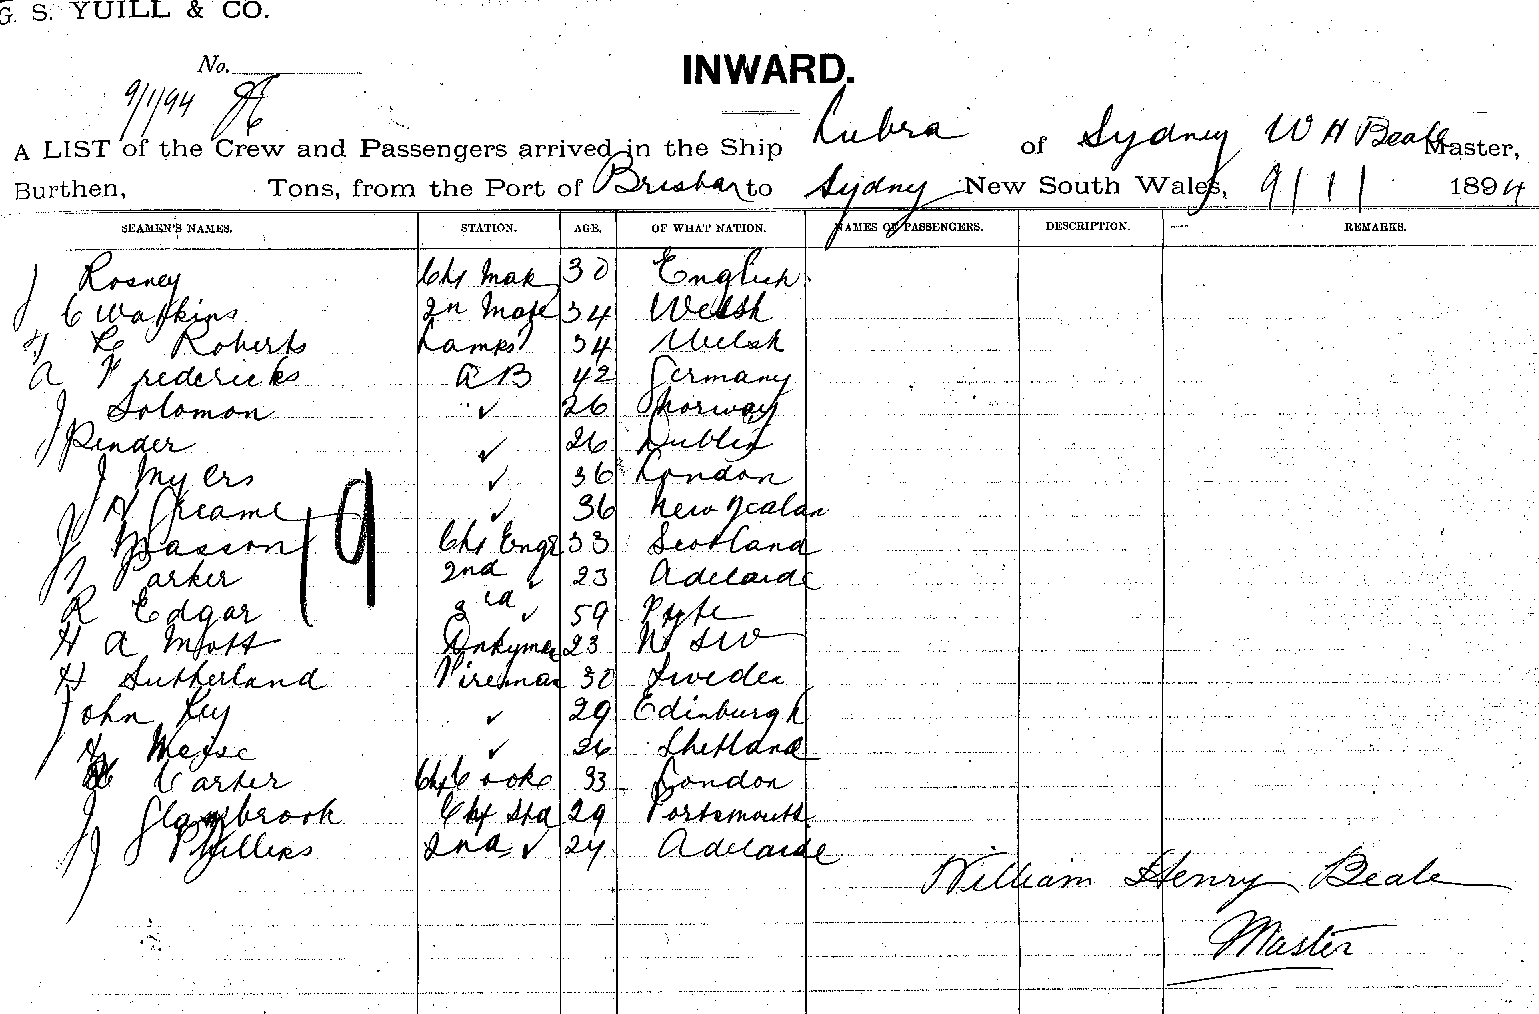 G. S. YUILL & CO.
No.
INWARD.
9/1/94
A LIST of the Crew and Passengers arrived in the Ship Kubra of Sydney W H Beale Master,
Burthen, Tons, from the Port of Brisban to Sydney New South Wales, 9/1/ 1894
SEAMEN'S NAMES. STATION. AGE. OF WHAT NATION. NAMES OF PASSENGERS. DESCRIPTION. REMARKS.
J Rosney Chf Mate 30 English
C Watkins 2n Mate 34 Welsh
Roberts Lamps 34 Welsh
A Fredericks AB 42 Germany
J Solomon ✓ 26 Norway
J Pender ✓ 26 Dublin
J Myers ✓ 36 London
✓ 36 New Zealan
J Masson Chf Engr 33 Scotland
Parker 2nd ✓ 23 Adelaide
R Edgar 3rd ✓ 59 Fyfe
H A Mott Dnkyman 23 N S W
H Sutherland Fireman 30 Sweden
John Ley ✓ 29 Edinburgh
✓ 26 Shetland
Carter Chf Cooke 33 London
J Glazbrook Chf Std 29 Portsmouth
J Phillips 2nd ✓ 24 Adelaide
19
William Henry Beale
Master